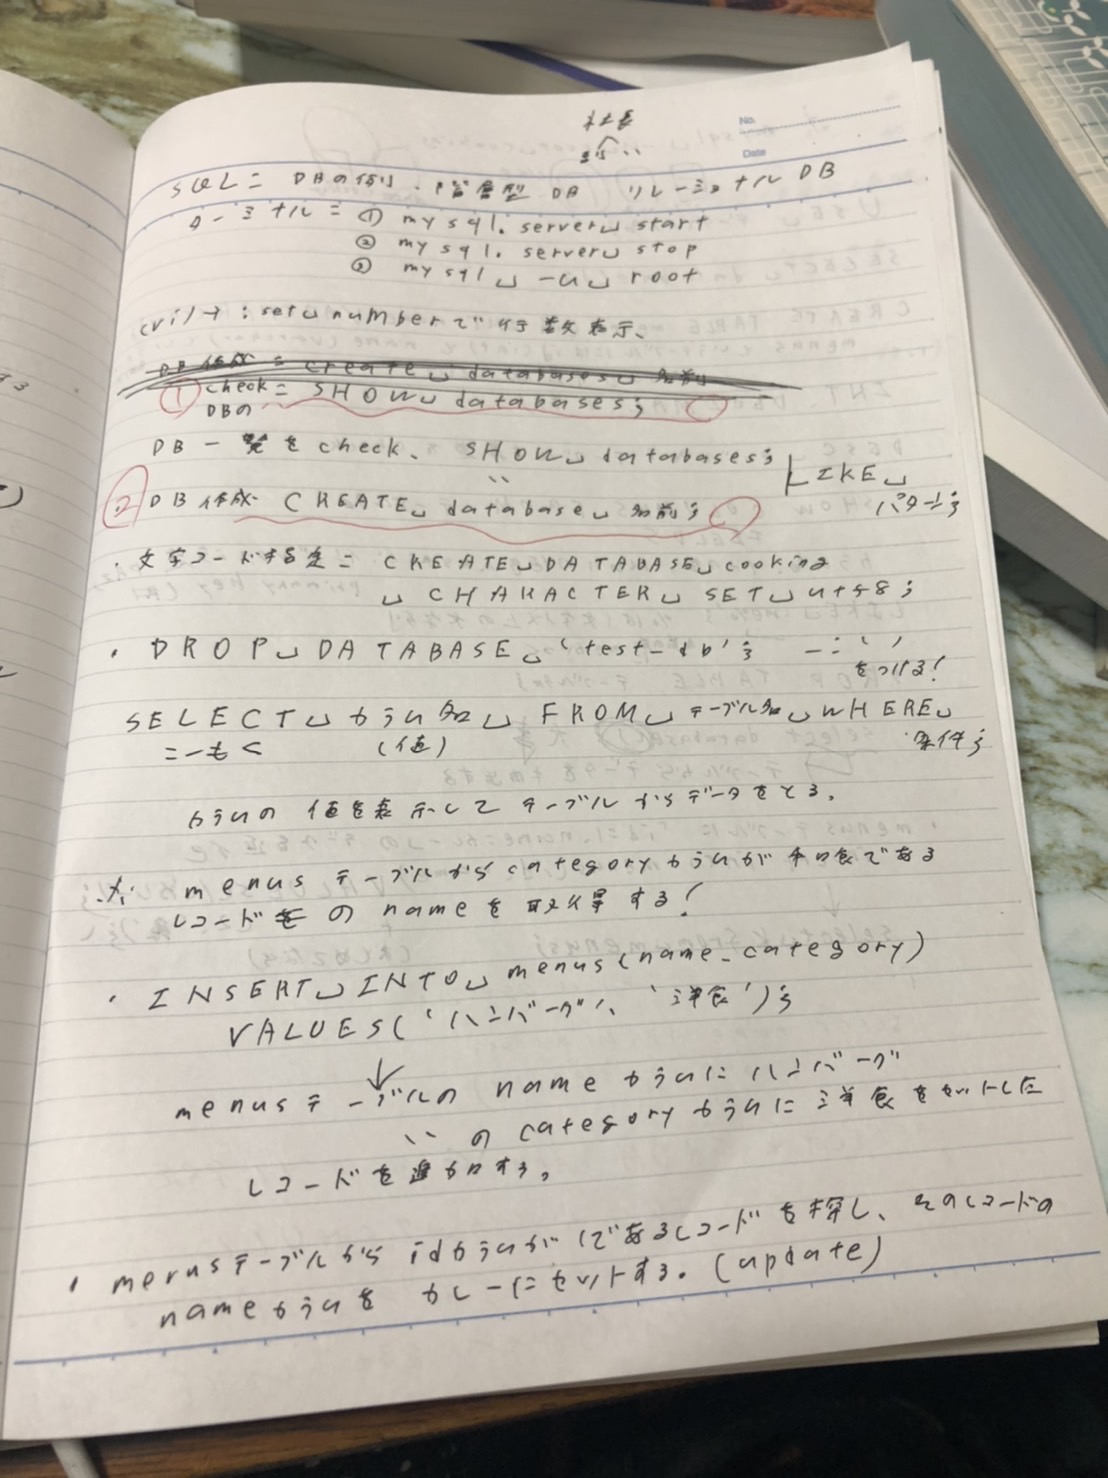 社長
No.
Date
SQL = DBの ・階層型 DB リレーショナル DB
ターミナル = ① mysql.server␣start
② mysql.server␣stop
③ mysql␣-u␣root
(vi)→ :set␣numberで行数表示、
DB作成 = create␣databases␣名前
① check = SHOW␣databases;
DBの
DB一覧をcheck、SHOW␣databases;
LIKE␣
パターン;
② DB作成 CREATE␣database␣名前;
・文字コードする定 = CREATE␣DATABASE␣cooking
␣CHARACTER␣SET␣utf8;
・DROP␣DATABASE␣'test-db'; -= ' '
をつける!
SELECT␣カラム名␣FROM␣テーブル名␣WHERE␣
(値) 条件;
カラムの値を表示してテーブルからデータをとる.
※ menus テーブルからcategoryカラムが和食である
レコードの nameを取得する!
・INSERT␣INTO␣menus(name.category)
VALUES('ハンバーグ'、'洋食');
↓
menusテーブルの nameカラムにハンバーグ
〃 の categoryカラムに洋食をセットした
レコードを追加する。
・menusテーブルからidカラムが1であるレコードを探し、そのレコードの
nameカラムを カレーにセットする. (update)